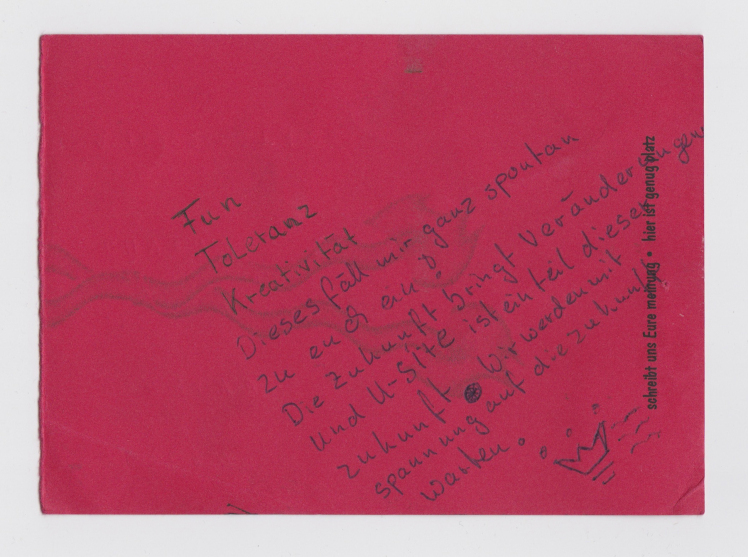 Fun
Toleranz
Kreativität
Dieses fäll mir ganz spontan
zu euch ein!
Die Zukunft bringt Veränderungen
und U-Site ist ein teil dieser
zukunft. Wir werden mit
spannung auf die zukunft
warten.
schreibt uns Eure meinung • hier ist genug platz